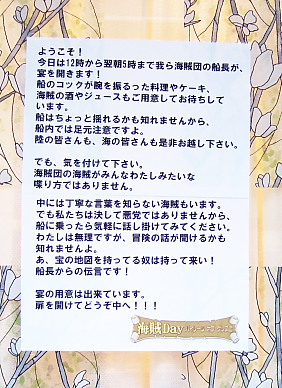 ようこそ！
今日は12時から翌朝5時まで我ら海賊団の船長が、
宴を開きます！
船のコックが腕を振るった料理やケーキ、
海賊の酒やジュースもご用意してお待ちして
います。
船はちょっと揺れるかも知れませんから、
船内では足元注意ですよ。
陸の皆さんも、海の皆さんも是非お越し下さい。
でも、気を付けて下さい。
海賊団の海賊がみんなわたしみたいな
喋り方ではありません。
中には丁寧な言葉を知らない海賊もいます。
でも私たちは決して悪党ではありませんから、
船に乗ったら気軽に話し掛けてみてください。
わたしは無理ですが、冒険の話が聞けるかも
知れませんよ。
あ、宝の地図を持ってる奴は持って来い！
船長からの伝言です！
宴の用意は出来ています。
扉を開けてどうぞ中へ！！！
海賊Day